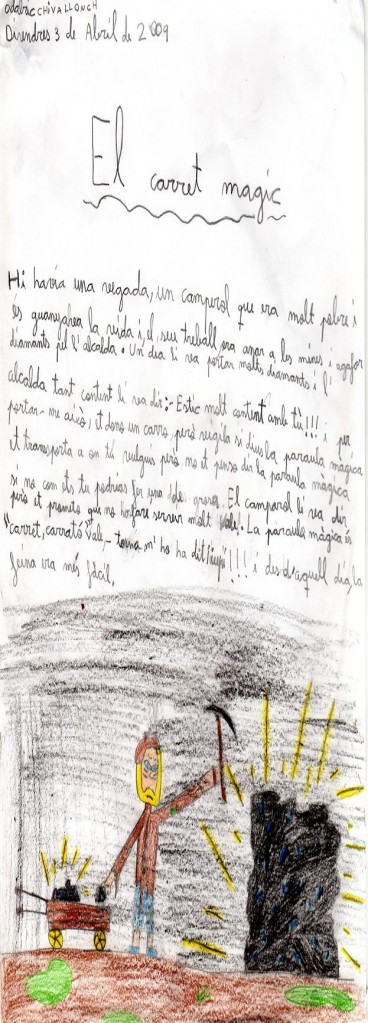 CHIVALLONGH
Divendres 3 de Abril de 2009
El carret magic
Hi havia una vegada, un camperol que era molt pobre i
és guanyava la vida i, el seu treball era anar a les mines i agafar
diamants pel l'alcalda. Un dia li va portar molts diamants i l'
alcalda tant content li va dir:- Estic molt content amb tú!!! i per
portar-me això, et dono un carro, però vigila si dius la paraula màgica
et transporta a on tú vulguis però no et penso dir la paraula màgica
si no com ets tu podrias fer una grossa. El camperol li va dir
però et prometo que no ho fare servir molt vale! La paraula màgica és
"carret, carretó" vale, - torna m'ho ha dit !!!! i des d'aquell dia, la
feina era més fàcil.